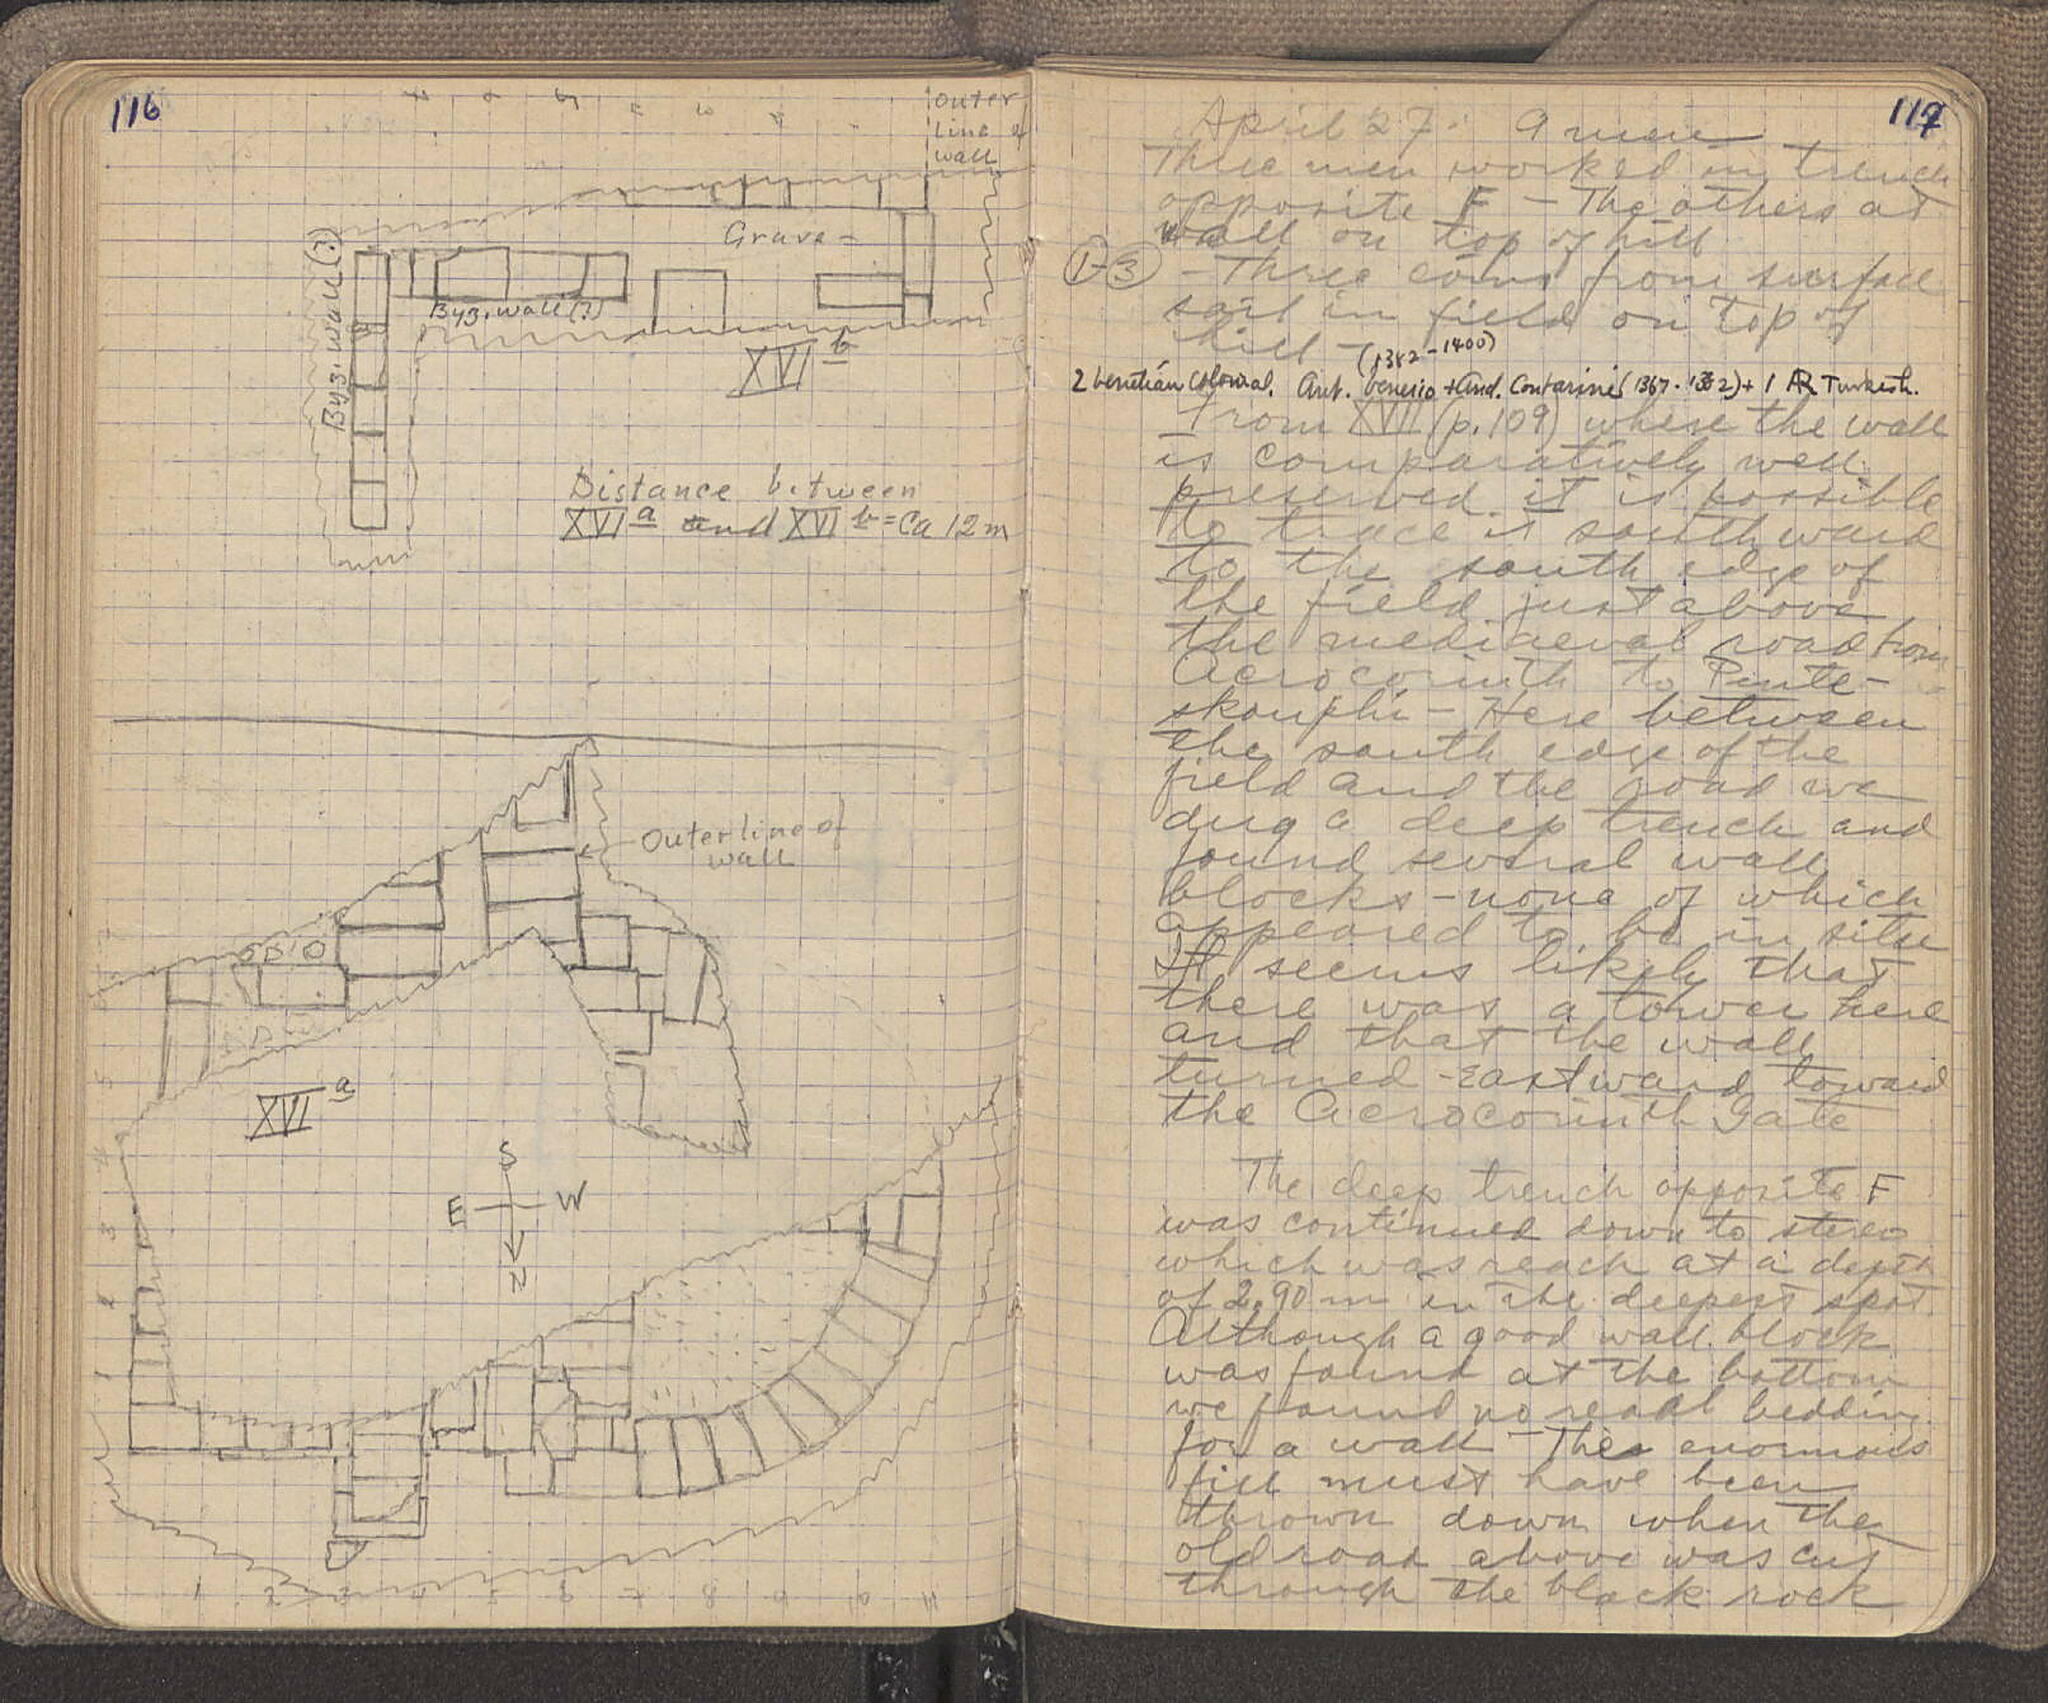 116
outer
line of
wall
Grave -
Byz. wall (?)
Byz. wall (?)
XVI b
Distance between
XVI a and XVI b = ca 12 m
Outer line of
wall
XVI a
S
E W
N
117
April 27. 9 men
Three men worked in trench
opposite F - The others at
wall on top of hill
1-3 - Three coins from surface
soil in field on top of
hill -
(1382-1400)
2 Venetian Colonial. Ant. Venerio + And. Contarini (1367-1382) + 1 AR Turkish.
From XVII (p. 109) where the wall
is comparatively well
preserved it is possible
to trace it southward
to the south edge of
the field just above
the mediaeval road from
Acrocorinth to Pente-
skouphi - Here between
the south edge of the
field and the road we
dug a deep trench and
found several wall
blocks - none of which
appeared to be in situ
It seems likely that
there was a tower here
and that the wall
turned eastward toward
the Acrocorinth Gate
The deep trench opposite F
was continued down to stereo
which was reach at a depth
of 2.90 m in the deepest spot.
Although a good wall block
was found at the bottom
we found no real bedding
for a wall - The enormous
fill must have been
thrown down when the
old road above was cut
through the black rock